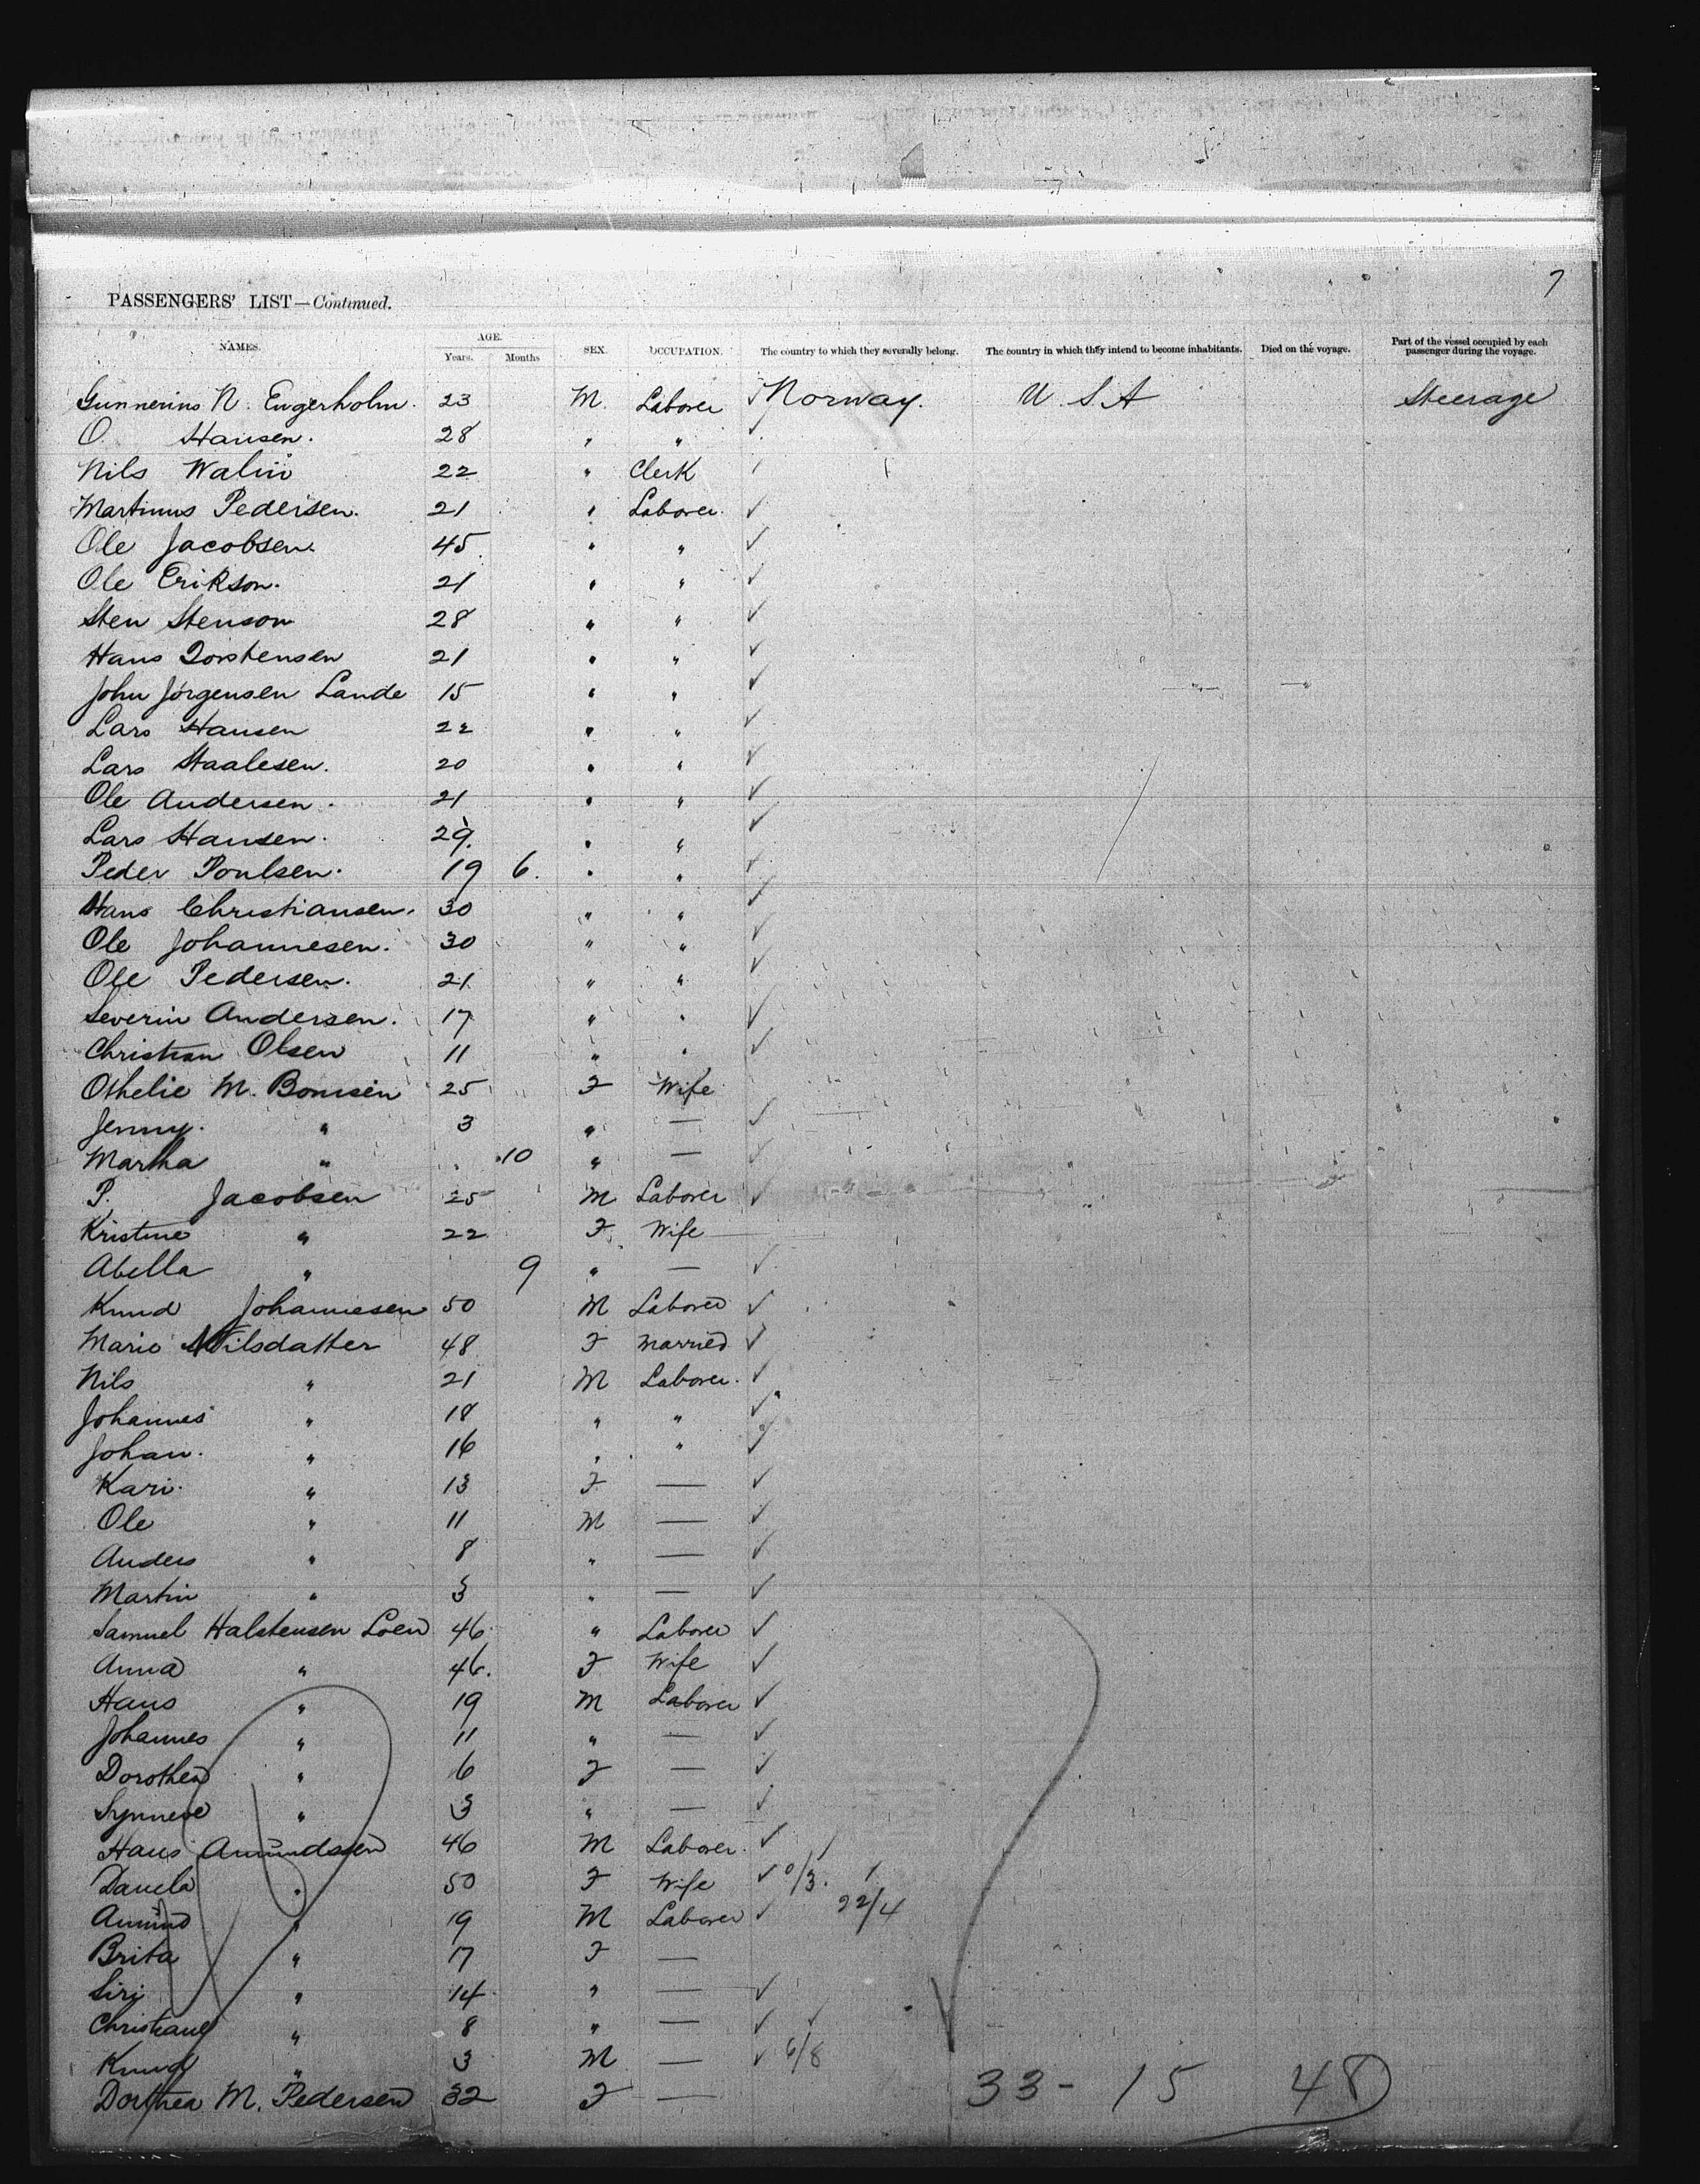 7
PASSENGERS' LIST—Continued.
NAMES. AGE. Years. Months SEX. OCCUPATION. The country to which they severally belong. The country in which they intend to become inhabitants. Died on the voyage. Part of the vessel occupied by each passenger during the voyage.
Gunnerius N. Engerholm. 23 M. Laborer ✓ Norway. U. S. A Steerage
O. Hansen. 28 " " ✓
Nils Walin 22 " Clerk ✓
Martinus Pedersen. 21 " Laborer. ✓
Ole Jacobsen. 45. " " ✓
Ole Erikson. 21 " " ✓
Sten Stenson 28 " " ✓
Hans Torstensen 21 " " ✓
John Jörgensen Lande 15 " " ✓
Lars Hansen 22 " " ✓
Lars Staalesen. 20 " " ✓
Ole Andersen. 21 " " ✓
Lars Hansen. 29. " " ✓
Peder Poulsen. 19 6. " " ✓
Hans Christiansen. 30 " " ✓
Ole Johannesen. 30 " " ✓
Ole Pedersen. 21 " " ✓
Severin Andersen. 17 " " ✓
Christian Olsen 11 " " ✓
Othelie M. 25 F Wife
Jenny. " 3 " — ✓
Martha " 10 " — ✓
P. Jacobsen 25 M Laborer ✓
Kristine " 22 F. Wife
Abella " 9 " — ✓
Knud Johannesen 50 M Laborer ✓
Marie Nilsdatter 48 F married ✓
Nils " 21 M Laborer. ✓
Johannes " 18 " " ✓
Johan. " 16 " " ✓
Kari. " 13 F — ✓
Ole " 11 M — ✓
Anders " 8 " — ✓
Martin " 3 " — ✓
Samuel Halstensen Loen 46 " Laborer ✓
Anna " 46. F Wife ✓
Hans " 19 M Laborer ✓
Johannes " 11 " — ✓
Dorothea " 6 F — ✓
Synneve " 3 " — ✓
Hans Amundssen 46 M Laborer. ✓
" 50 F Wife ✓ 0/3. 1
Amund " 19 M Laborer ✓ 22/4
Brita " 17 F —
Siri " 14 " — ✓
Christiane " 8 " — ✓ ✓
Knud " 3 M — ✓ 6/8
Dorthea M. Pedersen 32 F —
33 - 15 48